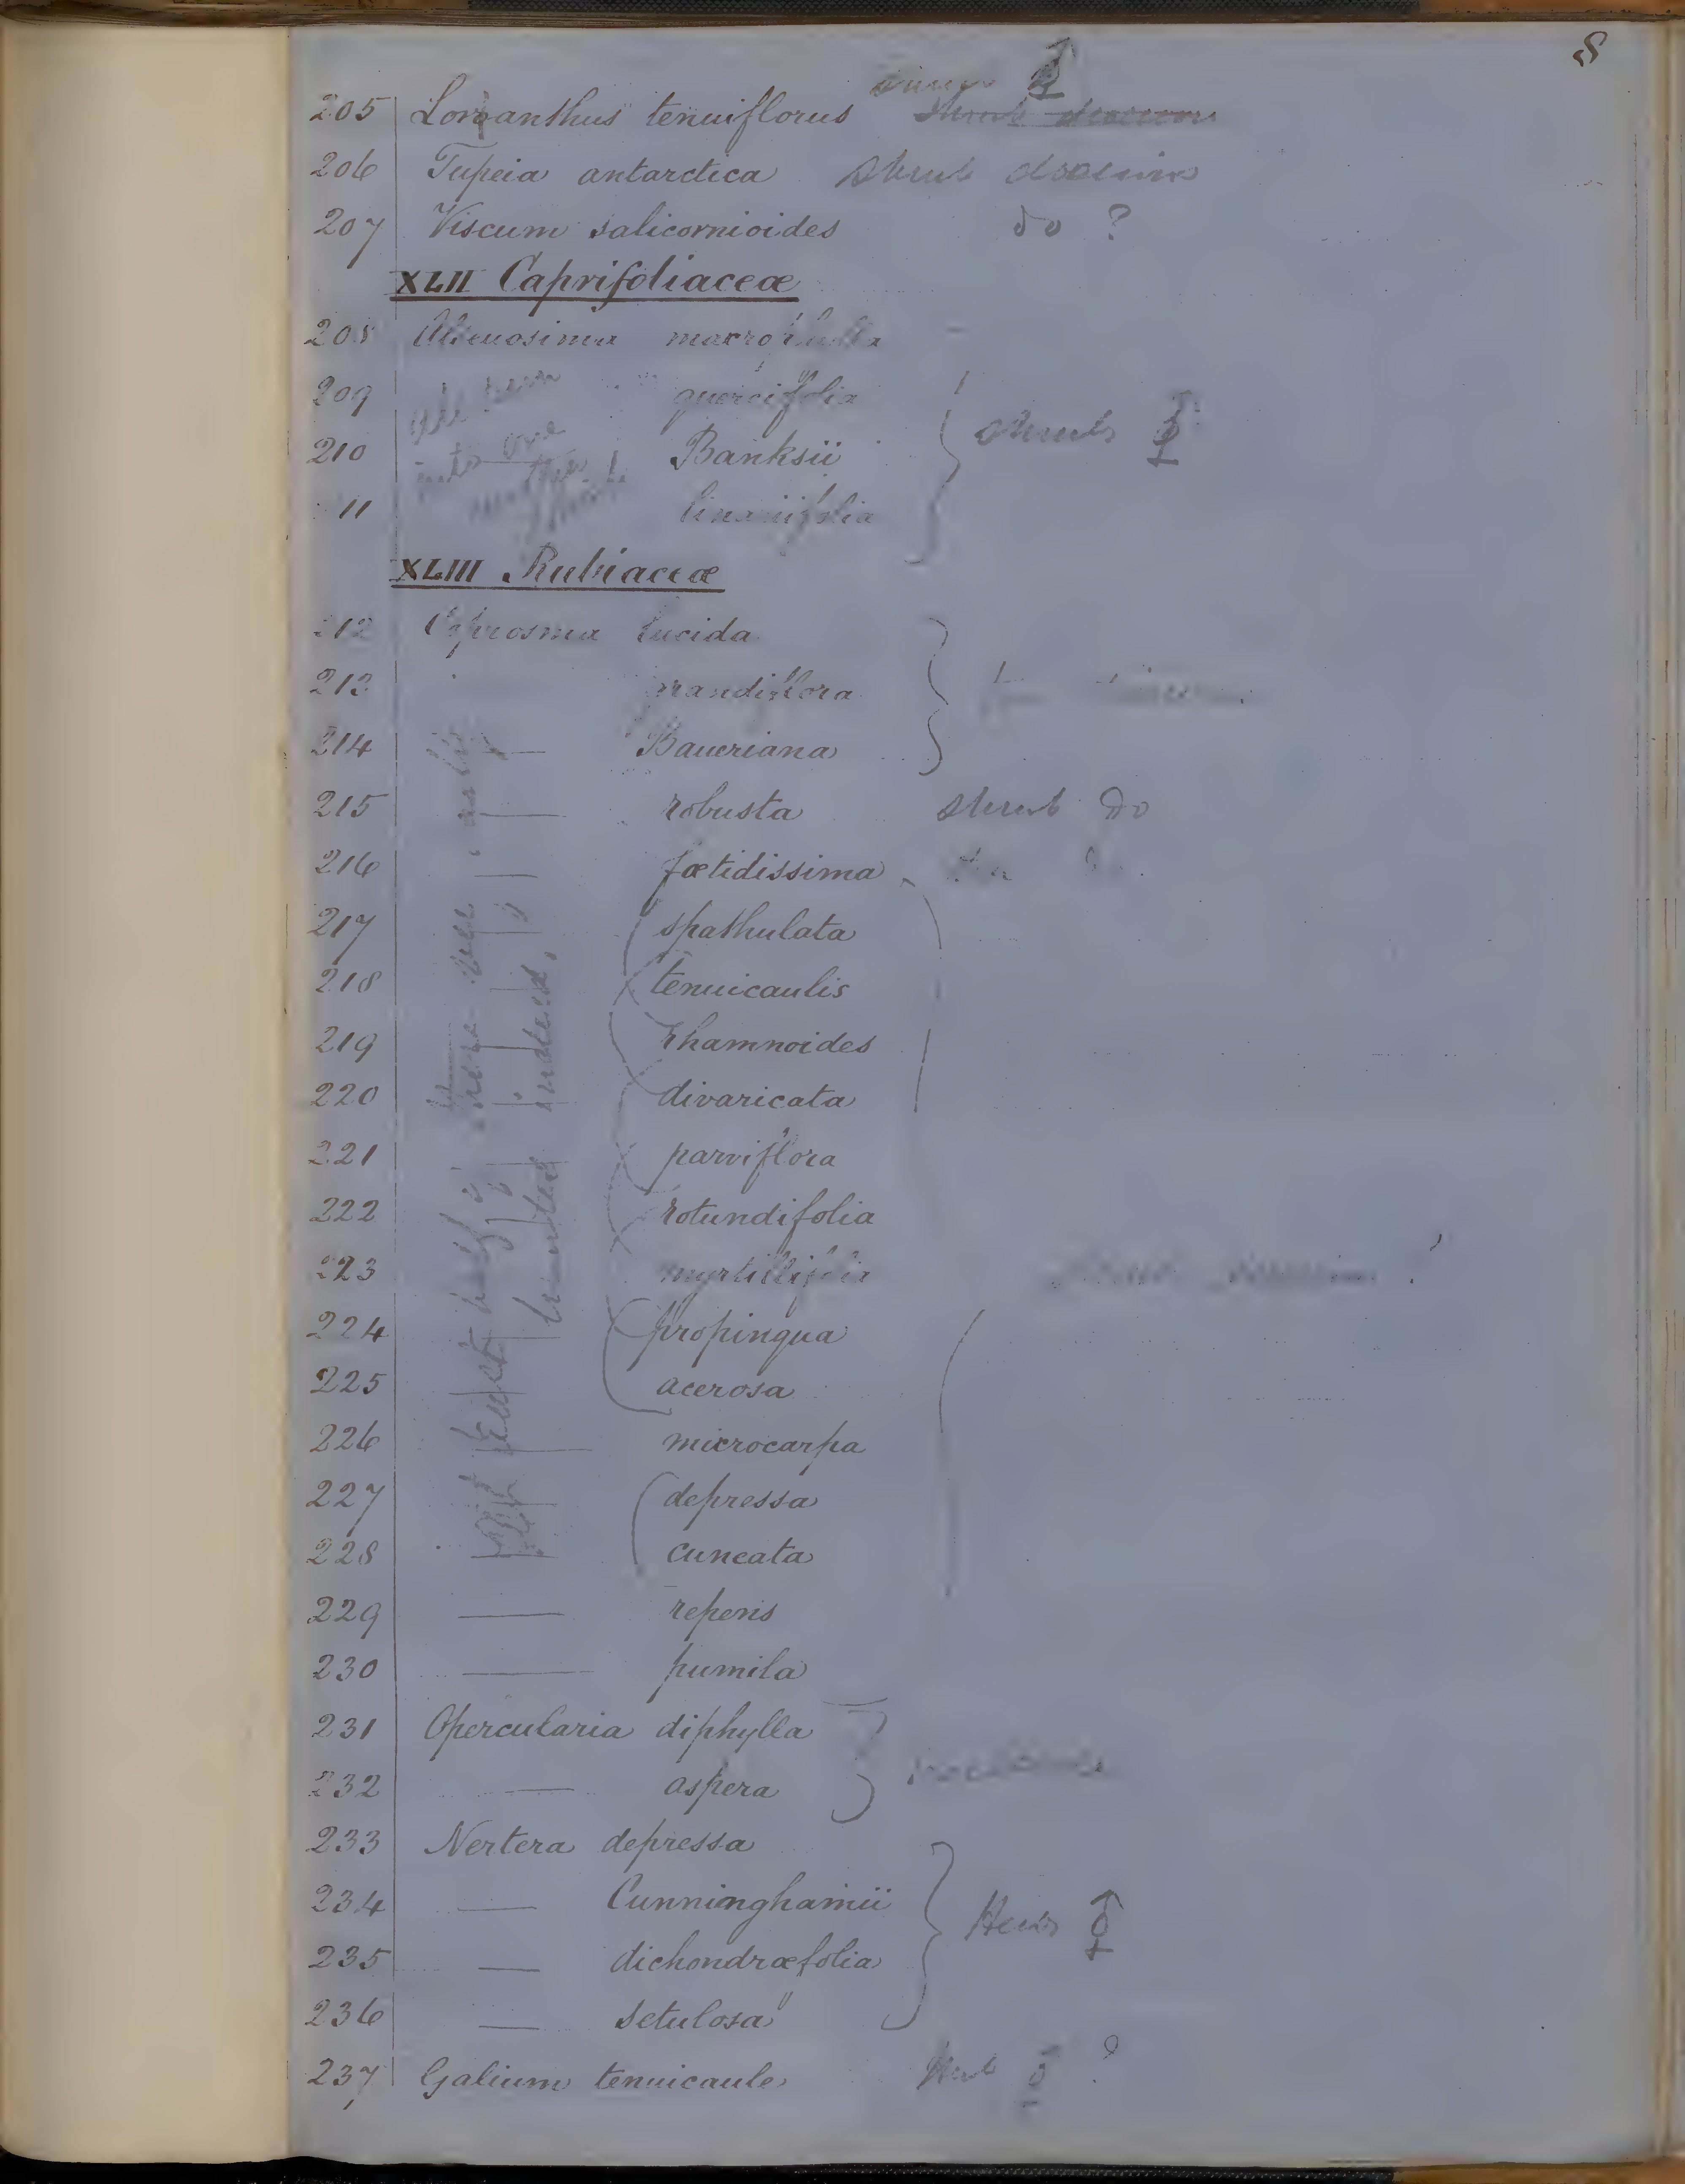 8
205 Loranthus tenuiflorus ⚥ shrub dioecious
206 Tupeia antarctica shrub dioecious
207 Viscum salicornioides do ?
XLII Caprifoliaceæ
208 Alseuosmia macrophylla
209 quercifolia
210 Banksii shrubs ⚥
11 linariifolia
all seem
into one
XLIII Rubiaceæ
212 Coprosma lucida
213 grandiflora
214 — Baueriana
215 — robusta shrub Do
216 — fœtidissima
217 — spathulata
218 — tenuicaulis
219 — rhamnoides
220 — divaricata
221 — parviflora
222 — rotundifolia
223 — myrtillifolia
224 — propinqua
225 — acerosa
226 — microcarpa
227 — depressa
228 — cuneata
229 — repens
230 — pumila
231 Opercularia diphylla
232 — aspera
233 Nertera depressa
234 — Cunninghamii Herbs ⚥
235 — dichondræfolia
236 — setulosa
237 Galium tenuicaule Herb ⚥ ?